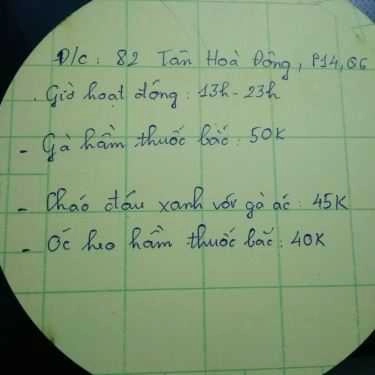 Đ/c : 82 Tân Hoà Đông, P14, Q6
. Giờ hoạt động : 13h - 23h
- Gà hầm thuốc bắc : 50K
- Cháo đậu xanh với gà ác : 45K
- Óc heo hầm thuốc bắc : 40K